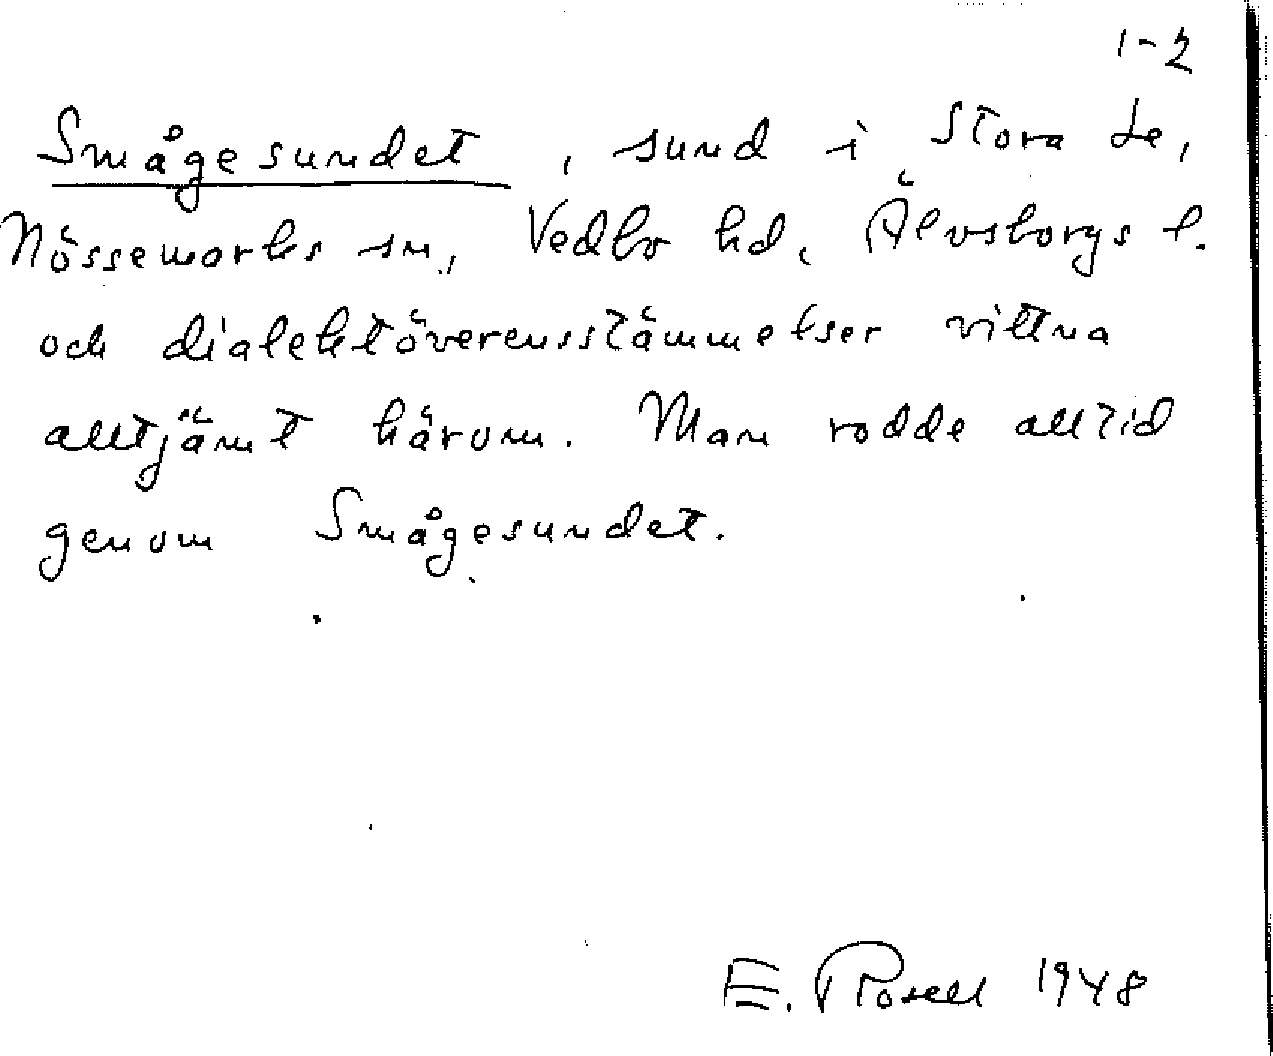 1-2
Smågesundet, sund i Stora Le,
Nössemarks sn., Vedbo hd. Älvsborgs l.
och dialektöverensstämmelser vittna
alltjämt härom. Man rodde alltid
genom Smågesundet.
E. Rosell 1948